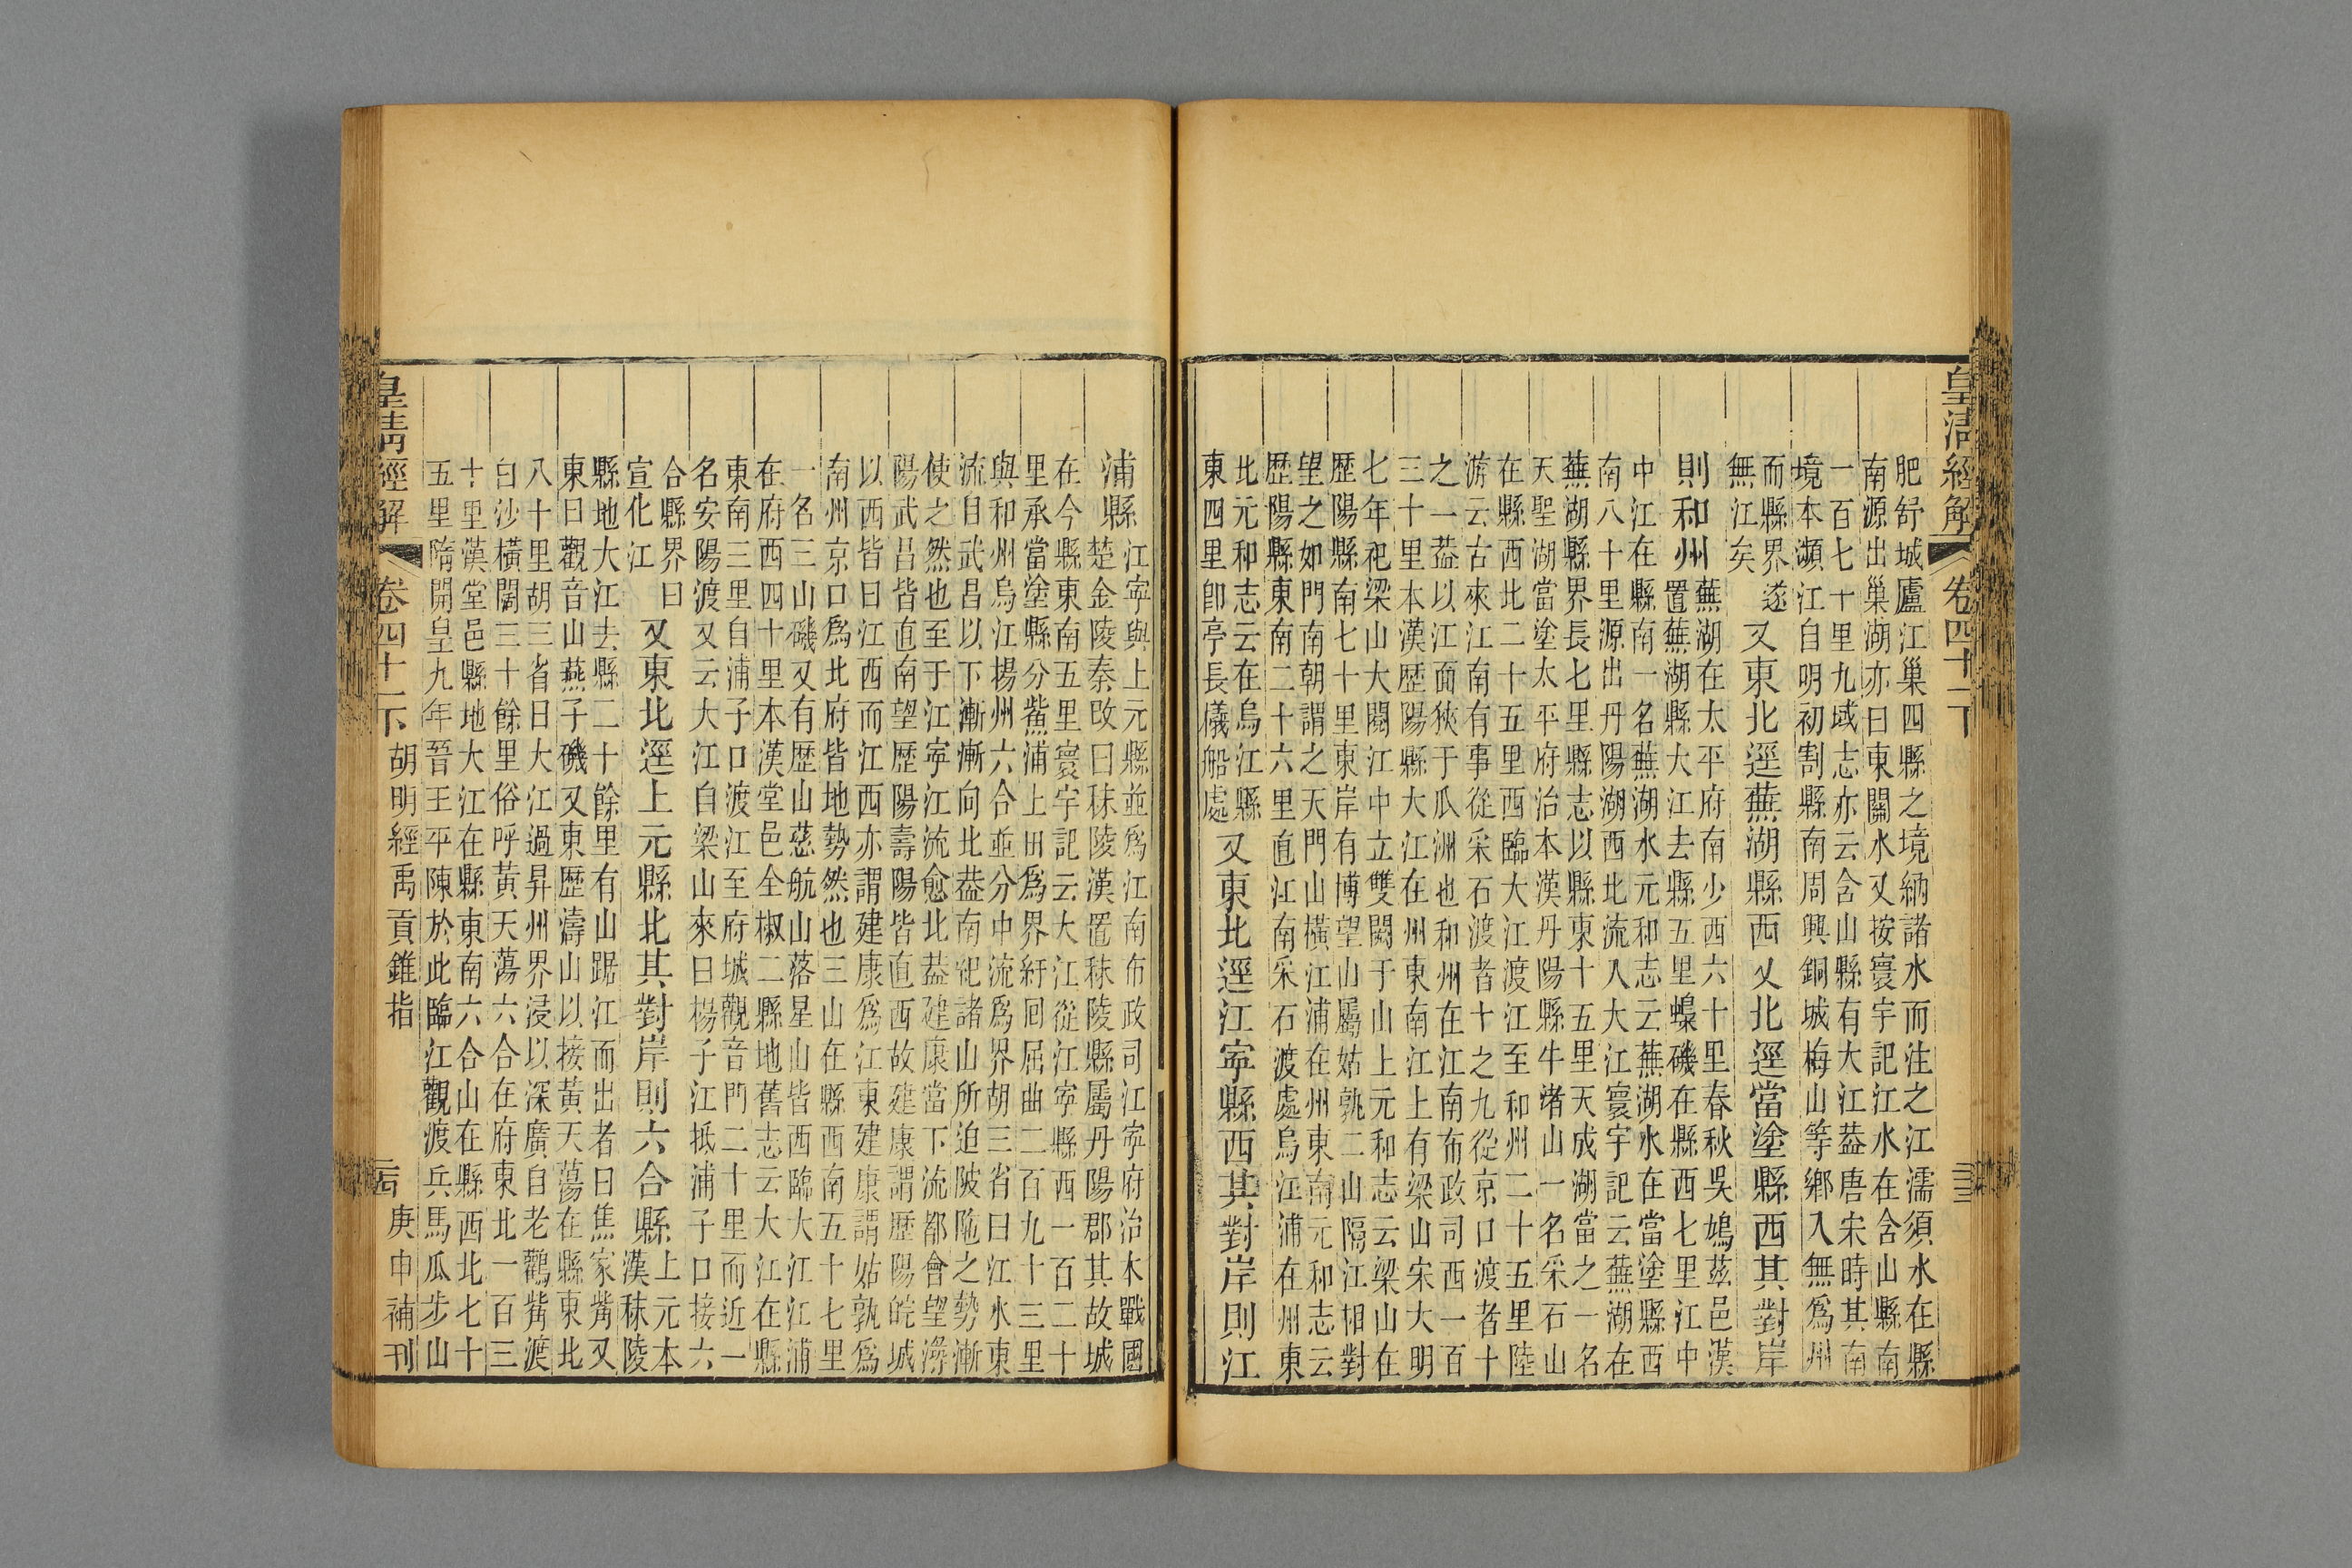 皇清經解 卷四十一下
肥舒城廬江巢四縣之境納諸水而注之江濡須水在縣
南源出巢湖亦曰東關水又按寰宇記江水在含山縣南
一百七十里九域志亦云含山縣有大江葢唐宋時其南
境本瀕江自明初割縣南周興銅城梅山等鄉入無爲州
而縣界遂
無江矣
又東北逕蕪湖縣西又北逕當塗縣西其對岸
則和州
蕪湖在太平府南少西六十里春秋吳鳩茲邑漢
置蕪湖縣大江去縣五里蟂磯在縣西七里江中
中江在縣南一名蕪湖水元和志云蕪湖水在當塗縣西
南八十里源出丹陽湖西北流入大江寰宇記云蕪湖在
蕪湖縣界長七里縣志以縣東十五里天成湖當之一名
天聖湖當塗太平府治本漢丹陽縣牛渚山一名采石山
在縣西北二十五里西臨大江渡江至和州二十五里陸
游云古來江南有事從采石渡者十之九從京口渡者十
之一葢以江面狹于瓜洲也和州在江南布政司西一百
三十里本漢歷陽縣大江在州東南江上有梁山宋大明
七年祀梁山大閱江中立雙闕于山上元和志云梁山在
歷陽縣南七十里東岸有博望山屬姑孰二山隔江相對
望之如門南朝謂之天門山橫江浦在州東南元和志云
歷陽縣東南二十六里直江南采石渡處烏江浦在州東
北元和志云在烏江縣
東四里卽亭長儀船處
又東北逕江寧縣西其對岸則江
浦縣
江寧與上元縣並爲江南布政司江寧府治本戰國
楚金陵秦改曰秣陵漢置秣陵縣屬丹陽郡其故城
在今縣東南五里寰宇記云大江從江寧縣西一百二十
里承當塗縣分鮆浦上田爲界紆回屈曲二百九十三里
與和州烏江揚州六合並分中流爲界胡三省曰江水東
流自武昌以下漸漸向北葢南祀諸山所迫陂陁之勢漸
使之然也至于江寧江流愈北葢建康當下流都會望潯
陽武昌皆直南望歷陽壽陽皆直西故建康謂歷陽皖城
以西皆曰江西而江西亦謂建康爲江東建康謂姑孰爲
南州京口爲北府皆地勢然也三山在縣西南五十七里
一名三山磯又有歷山慈航山落星山皆西臨大江江浦
在府西四十里本漢堂邑全椒二縣地舊志云大江在縣
東南三里自浦子口渡江至府城觀音門二十里而近一
名安陽渡又云大江自梁山來曰楊子江抵浦子口接六
合縣界曰
宣化江
又東北逕上元縣北其對岸則六合縣
上元本
漢秣陵
縣地大江去縣二十餘里有山踞江而出者曰焦家觜又
東曰觀音山燕子磯又東歷濤山以接黃天蕩在縣東北
八十里胡三省曰大江過昇州界浸以深廣自老鸛觜渡
白沙橫闊三十餘里俗呼黃天蕩六合在府東北一百三
十里漢堂邑縣地大江在縣東南六合山在縣西北七十
五里隋開皇九年晉王平陳於此臨江觀渡兵馬瓜步山
皇清經解 卷四十一下 胡明經禹貢錐指 庚申補刊